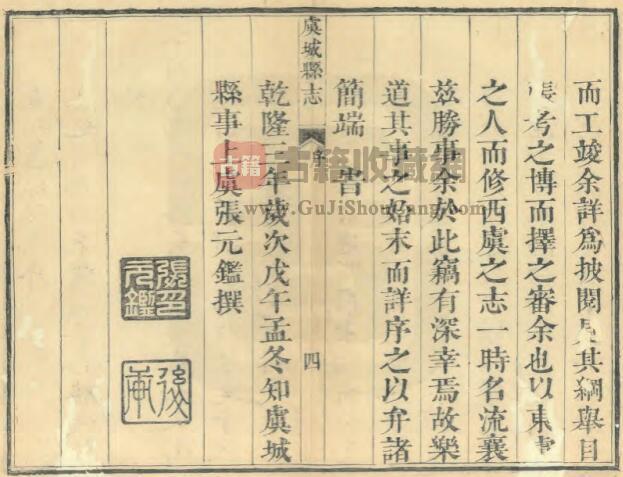 而工竣余詳爲披閱見其綱舉目
張考之博而擇之審余也以東虞
之人而修西虞之志一時名流襄
玆勝事余於此竊有深幸焉故樂
道其事之始末而詳序之以弁諸
簡端旹
虞城縣志
序
四
乾隆三年歲次戊午孟冬知虞城
縣事上虞張元鑑撰
張印元鑑
古籍
古籍收藏網
www.GuJiShouCang.com